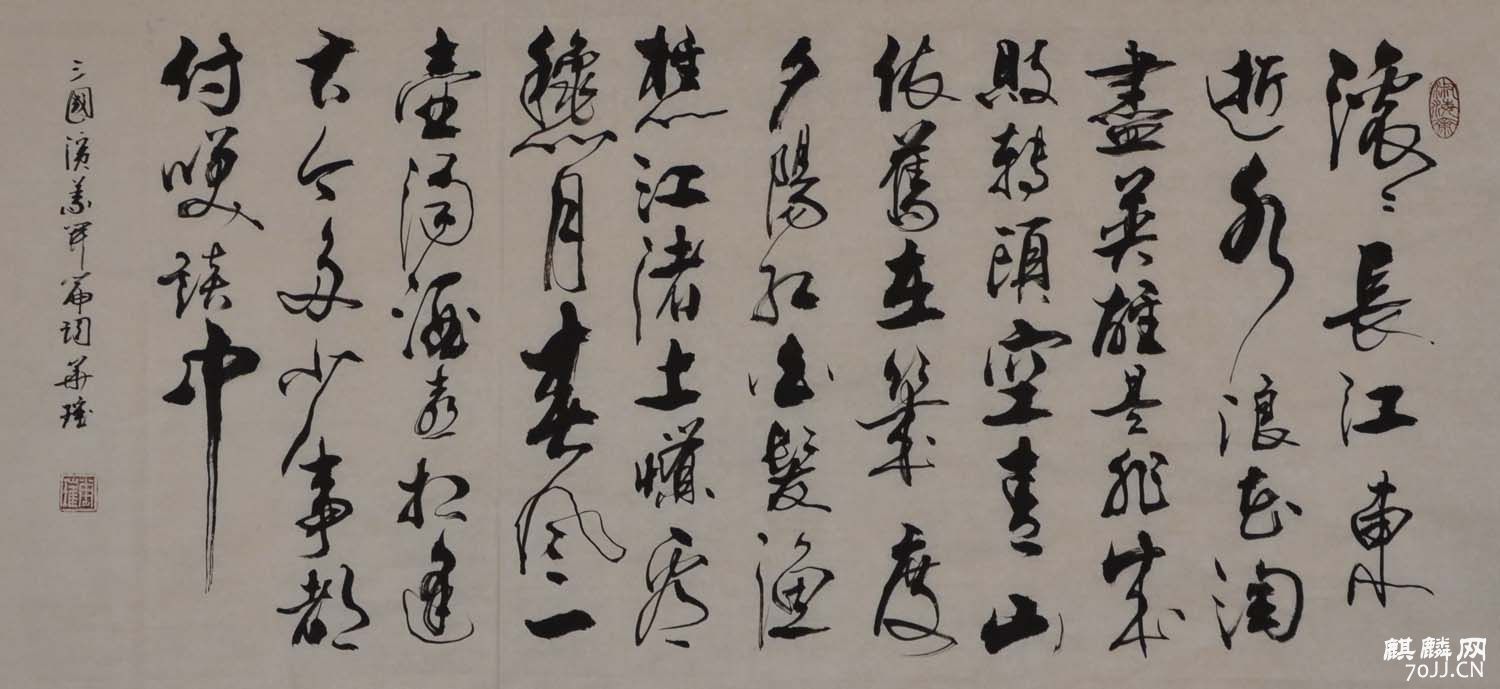 滚〻長江東
逝水浪花淘
盡英雄是非成
敗轉頭空青山
依舊在幾度
夕陽紅白髮漁
樵江渚上慣看
龝月春風一
壺濁酒喜相逢
古今多少事都
付咲談中
三國演義開篇詞華
麒麟网
70JJ.CN